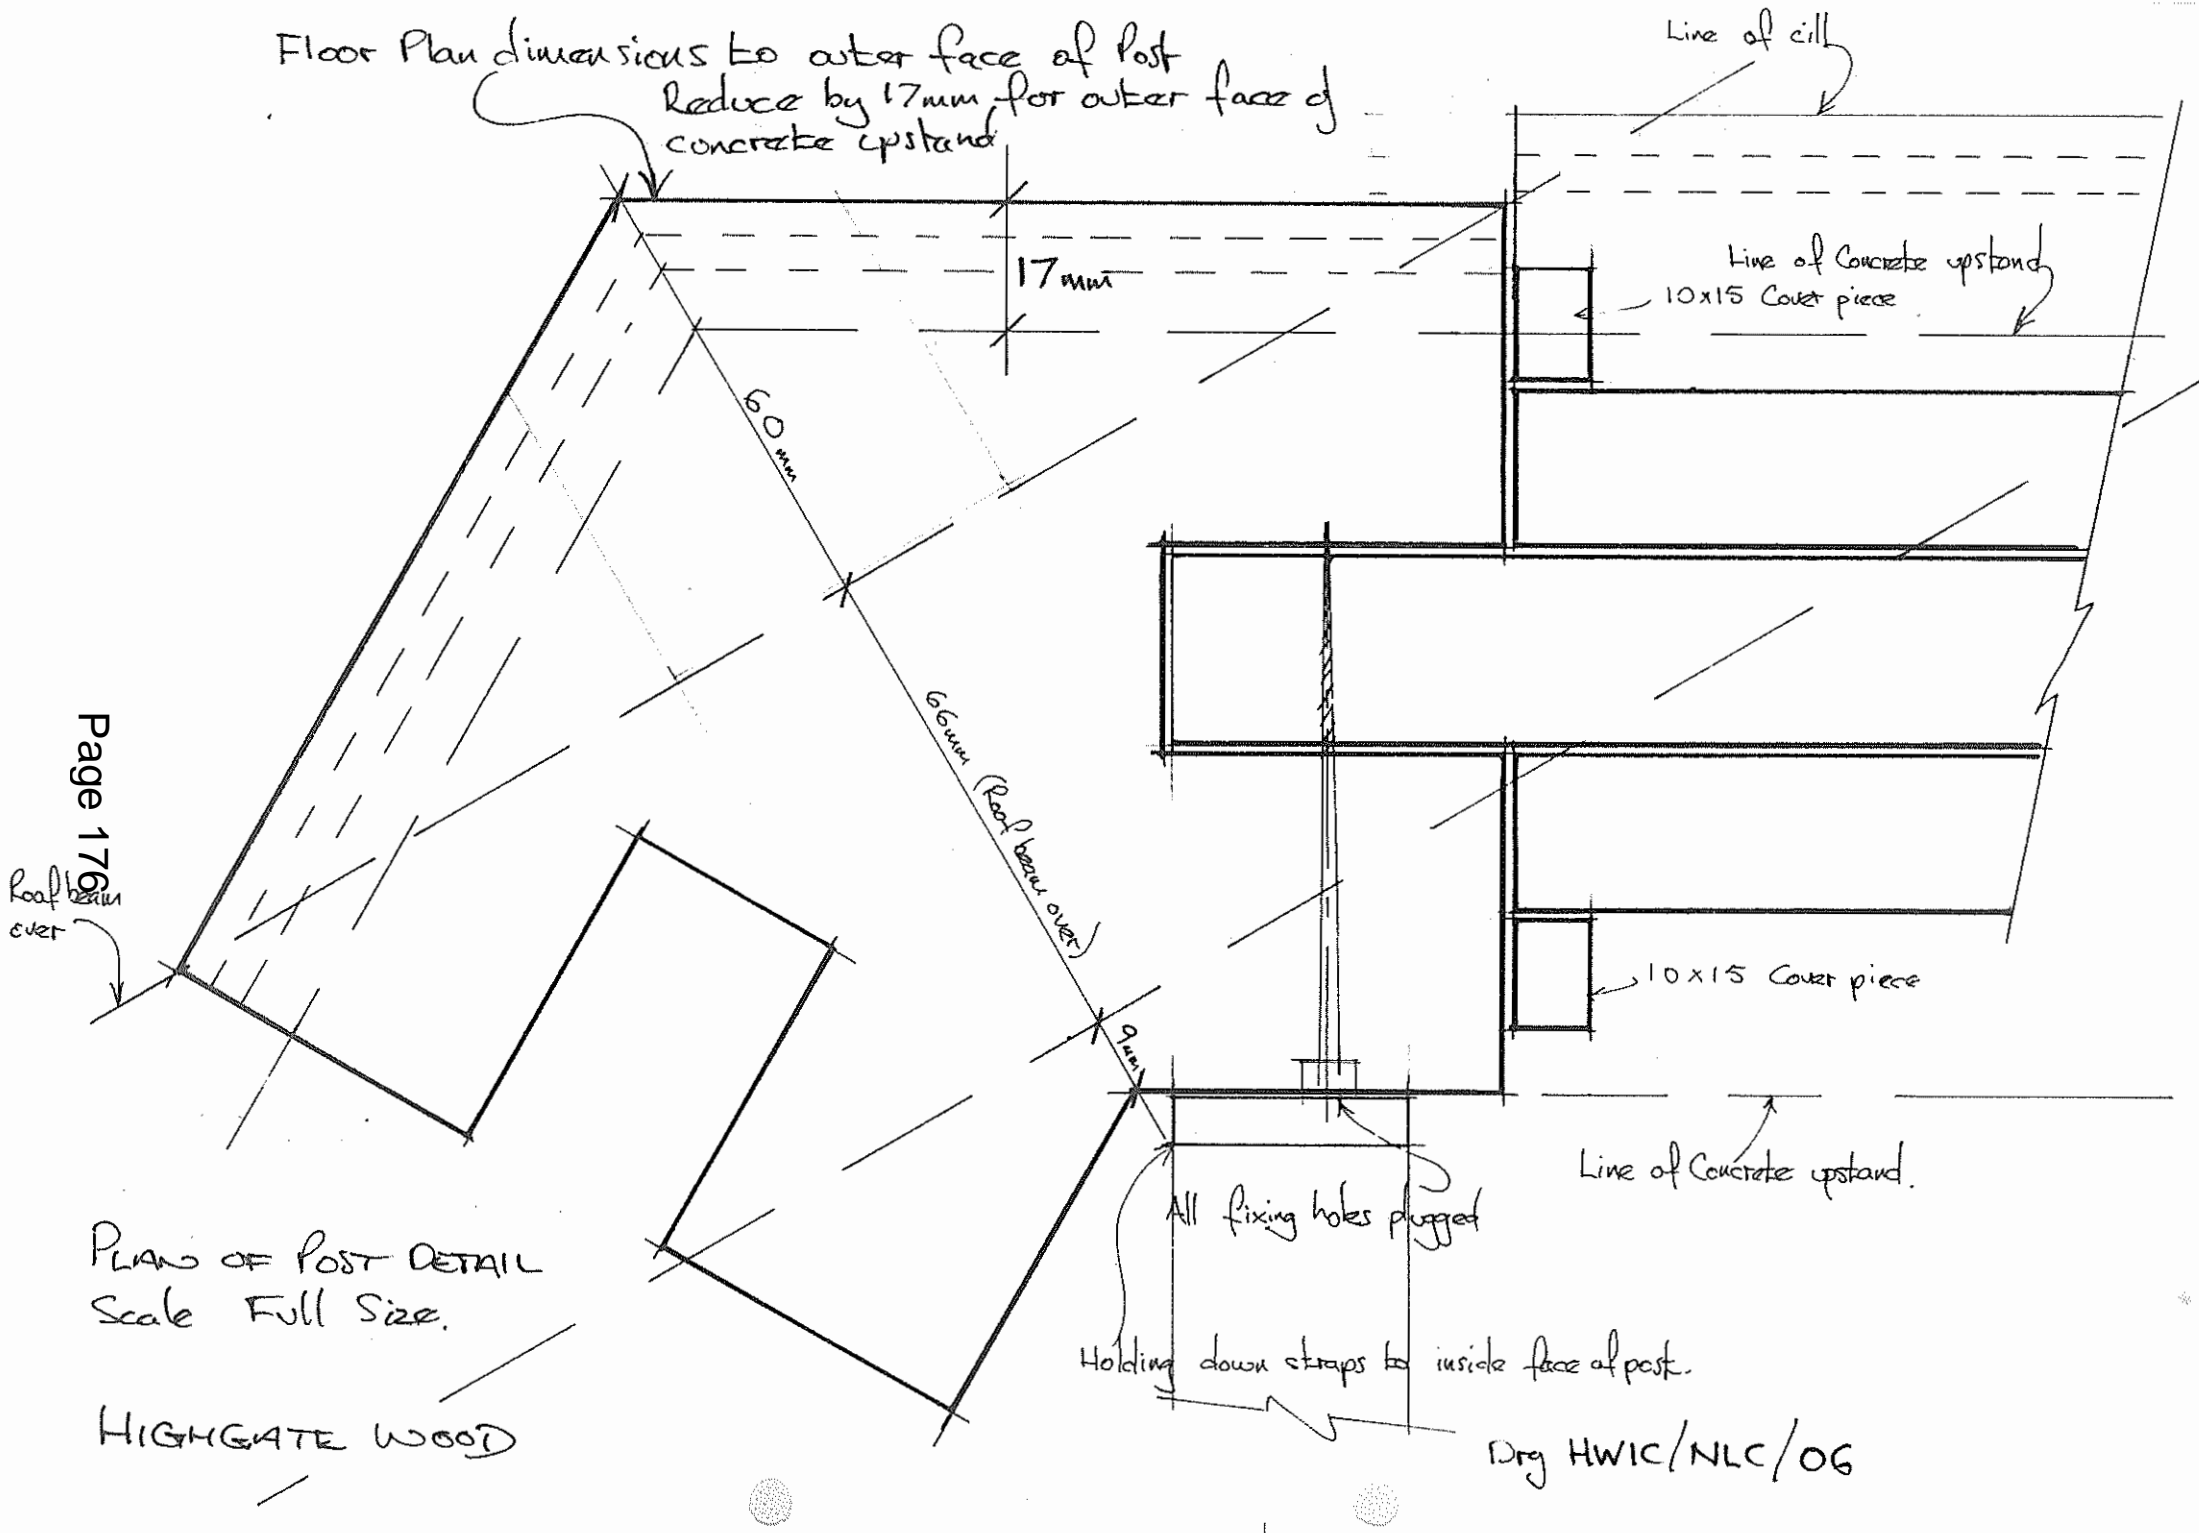 Floor Plan dimensions to outer face of Post
Reduce by 17mm for outer face of
concrete upstand
Line of cill
17mm
Line of Concrete upstand
10x15 Cover piece
60mm
66mm (Roof beam over)
9mm
Page 176
Roof beam
over
10x15 Cover piece
Line of Concrete upstand.
All fixing holes plugged
Holding down straps to inside face of post.
PLAN OF POST DETAIL
Scale Full Size.
HIGHGATE WOOD
Drg HWIC/NLC/06